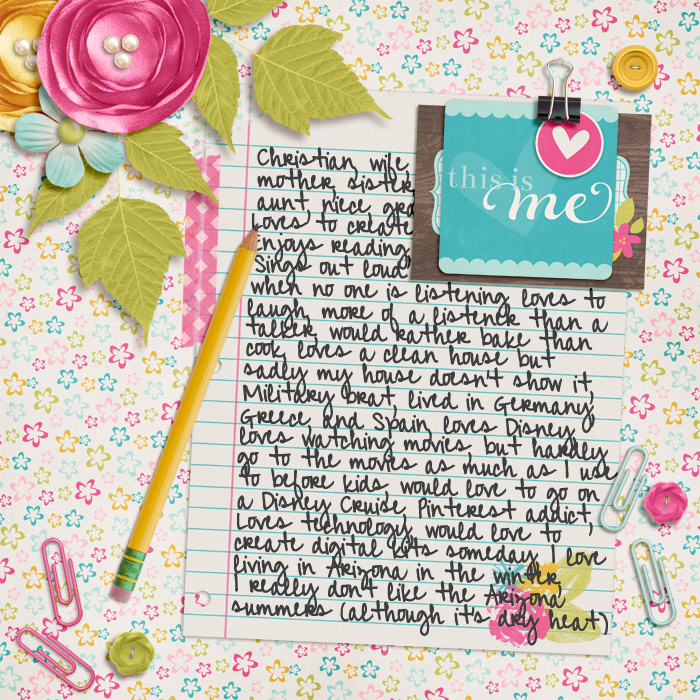 Christian, wife
mother, sister,
aunt, niece,
Loves to create
Enjoys reading,
Sings out loud
when no one is listening, loves to
laugh, more of a listener than a
talker, would rather bake than
cook, loves a clean house but
sadly my house doesn't show it,
Military brat, lived in Germany,
Greece, and Spain, loves Disney,
loves watching movies, but hardley
go to the movies as much as I use
to before kids, would love to go on
a Disney Cruise, Pinterest addict,
Loves technology, would love to
create digital kits someday, I love
living in Arizona in the winter,
I really don't like the Arizona
summers (although it's dry heat)
this is
me